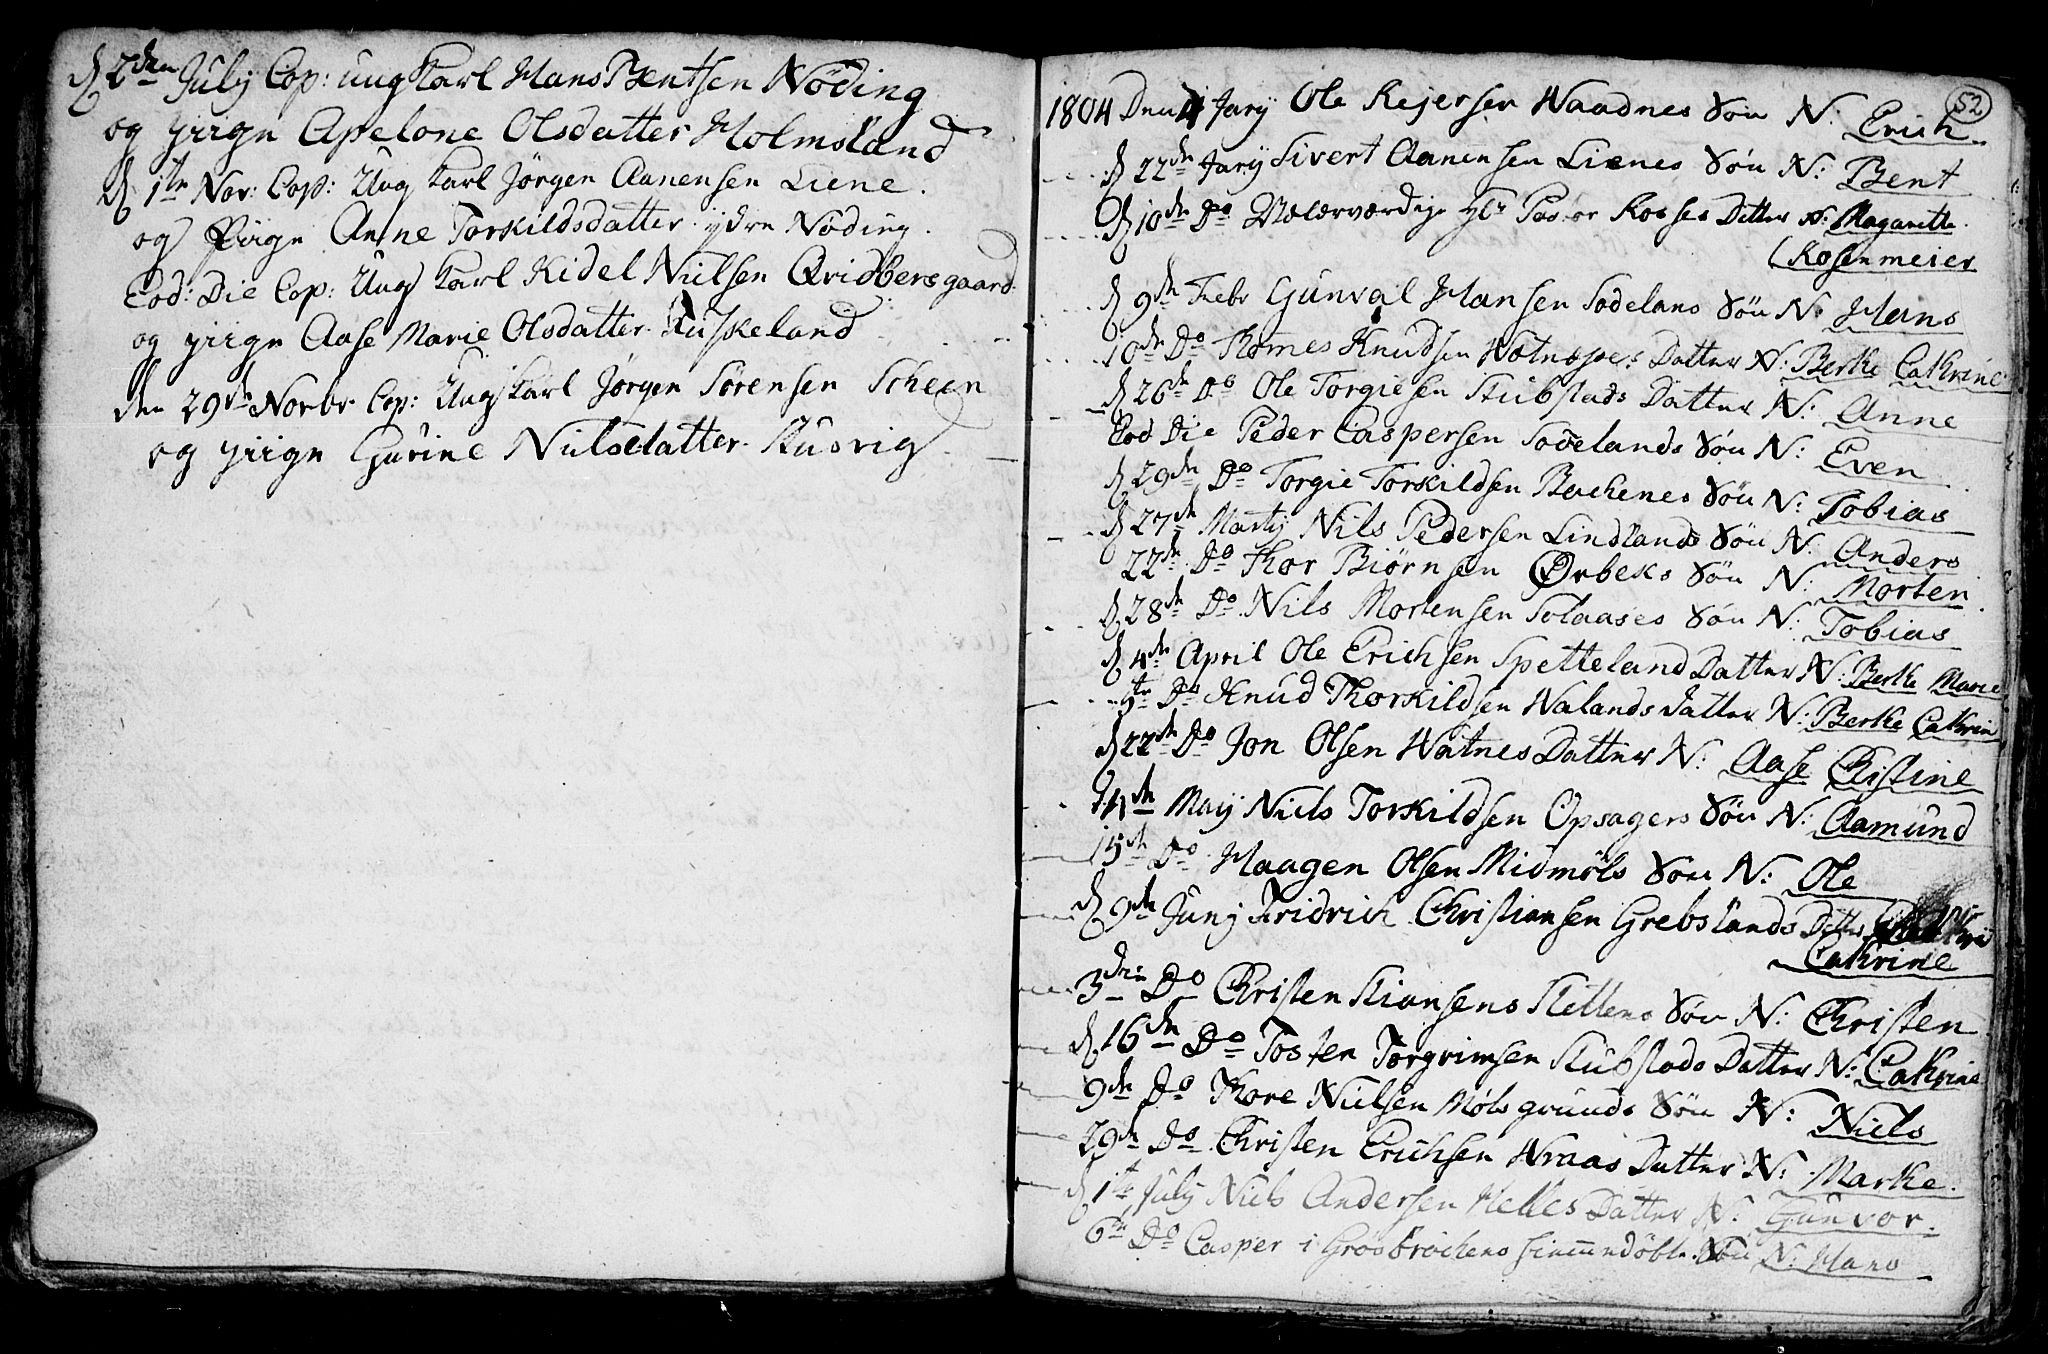 d 2den July Cop: ung Karl Hans Bentsen Nöding
og piige Apelone Olsdatter Holmsland
d 1te Nov: Cop: Ung Karl Jörgen Aanensen Liene.
og Piige Anne Torkildsdatter ydre Nöding.
Eod: Die Cop: Ung Karl Kidel Nielsen Qvidbergsgaard
og piige Aase Marie Olsdatter Kuskeland
den 29de Novbr Cop: Ung Karl Jörgen Sörensen Scheen
og piige Gurine Nielsdatter Kusvig
52
1804 Den 4 Jary Ole Rejersen Waadnes Sön N: Erich
d 22de Jary Sivert Aanensen Lienes Sön N: Bent
d 10de Do Velærværdige Hr Pastor Rosses Datter N: Magarette
Rosenmeier
d 9de Febr Gunval Hansen Sodelans Sön N: Hans
10de Do Thomes Knudsen Datter N: Berthe Cathrine
d 26de Do Ole Torgiesen Stubstads Datter N: Anne
Eod Die Peder Caspersen Sodelands Sön N: Even
d 29de Do Torgie Torkildsen Bechenes Sön N: Tobias
d 27de Martij Nils Pedersen Lindlands Sön N: Anders
22de Do Thor Biörnsen Ørbeks Sön N: Morten
d 28de Do Nils Mortensen Solaases Sön N: Tobias
d 4de April Ole Erichsen Spetteland Datter N: Berthe Marie
5te Do Knud Thorkildsen Walands Datter N: Berthe Cathrin
d 22de Do Jon Olsen Watnes Datter N: Aase Christine
14de Maij Niels Torkildsen Opsagers Sön N: Aamund
15de Do Haagen Olsen Midmöls Sön N: Ole
d 9de Junij Fridrich Christiansen Grebslands Datter
Cathrine
3die Do Christen Stiansens Slettens Sön N: Christen
d 16de Do Tosten Torgrimsen Stubstads Datter N: Cathrine
9de Do Thore Nielsen Mölsgrunds Sön N: Niels
29de Do Christen Erichsen Wraas Datter N: Marthe.
d 1te July Niels Andersen Helles Datter N: Gunvor.
6te Do Casper i Grosbrochens Sön N: Hans